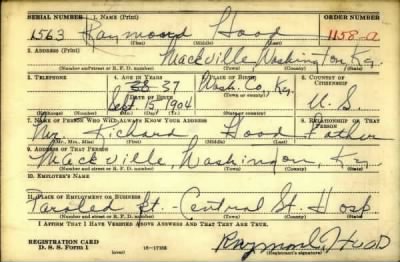 SERIAL NUMBER 1. NAME (Print) ORDER NUMBER
1563 Raymond Hood 1158-A
(First) (Middle) (Last)
2. ADDRESS (Print)
Mackville, Washington, Ky.
(Number and street or R. F. D. number) (Town) (County) (State)
3. TELEPHONE 4. AGE IN YEARS 5. PLACE OF BIRTH 6. COUNTRY OF CITIZENSHIP
37 Wash. Co., Ky.
DATE OF BIRTH (Town or county) U. S.
Sept. 15 1904
(Exchange) (Number) (Mo.) (Day) (Yr.) (State or country)
7. NAME OF PERSON WHO WILL ALWAYS KNOW YOUR ADDRESS 8. RELATIONSHIP OF THAT PERSON
Mr. Richard Hood Father
(Mr., Mrs., Miss) (First) (Middle) (Last)
9. ADDRESS OF THAT PERSON
Mackville, Washington, Ky.
(Number and street or R. F. D. number) (Town) (County) (State)
10. EMPLOYER'S NAME
11. PLACE OF EMPLOYMENT OR BUSINESS
Paroled Pt. - Central St. Hosp.
(Number and street or R. F. D. number) (Town) (County) (State)
I AFFIRM THAT I HAVE VERIFIED ABOVE ANSWERS AND THAT THEY ARE TRUE.
REGISTRATION CARD
D. S. S. Form 1 (over) Raymond Hood
(Registrant's signature)